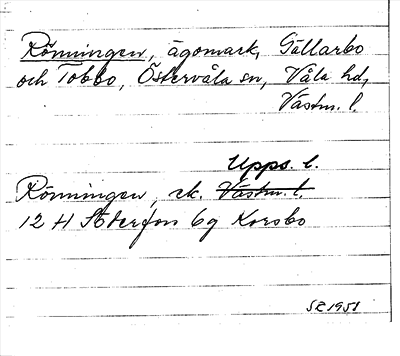 Rönningen, ägomark, Gällarbo
och Tobbo, Östervåla sn, Våla hd,
Västm. l.
Upps. l.
Rönningen, ek. Västm. l.
12 H Söderfors 6g Korsbo
SE 1951